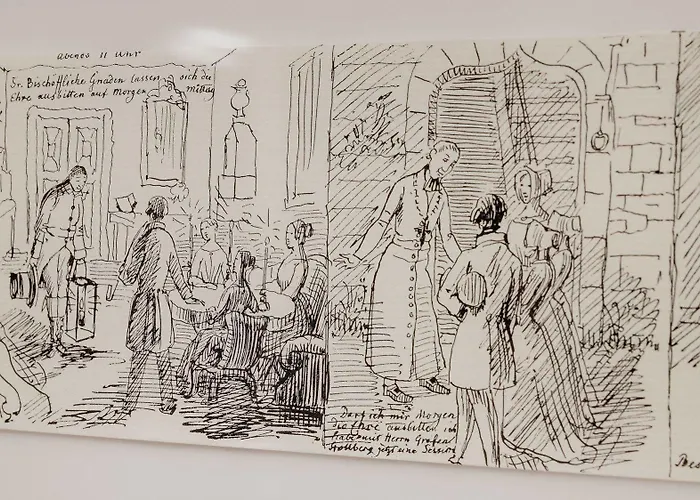 abends 11 Uhr
Sr. Bischöffliche Gnaden lassen sich die
Ehre ausbitten auf Morgen Mittag
Darf ich mir Morgen
die Ehre ausbitten ich
habe mit Herrn Grafen
Stollberg jetzt eine Session